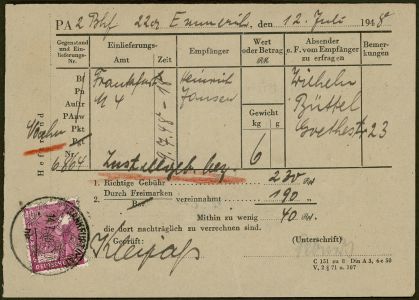 PA 2 Bhf 22c, Emmerich, den 12. Juli 1948
Gegenstand und Einlieferungs-Nr.
Einlieferungs-
Amt Zeit
Empfänger
Wert oder Betrag
RM
Absender
e. F. vom Empfänger zu erfragen
Bemer-kungen
Bf
Pn
Auftr
PAnw
Pkt
Pgt
Nr.
Heftrand
Frankfurt
M 4
9.7.48 - 18
Heinrich
Jansen
Wilhelm
Büttel
Goethest. 23
Gewicht
kg g
6
6864
Zustellgeb. bez.
1. Richtige Gebühr 230
2. Durch Freimarken vereinnahmt 190
Bar
Mithin zu wenig 40
die dort nachträglich zu verrechnen sind.
Geprüft:
(Unterschrift)
C 151 zu 8 Din A 3, 6e 50
V, 2 § 71 u. 107